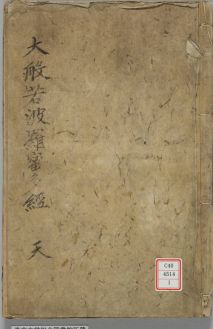 大般若波羅蜜多經 天
C40
4514
1